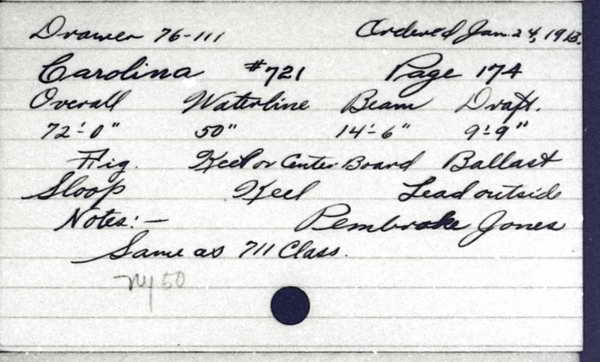 Drawer 76-111 Ordered Jan 24, 1913.
Carolina #721 Page 174
Overall Waterline Beam Draft.
72'-0" 50" 14'-6" 9'-9"
Rig. Keel or Center-Board Ballast
Sloop Keel Lead outside
Notes:- Pembroke Jones
Same as 711 Class.
NY 50